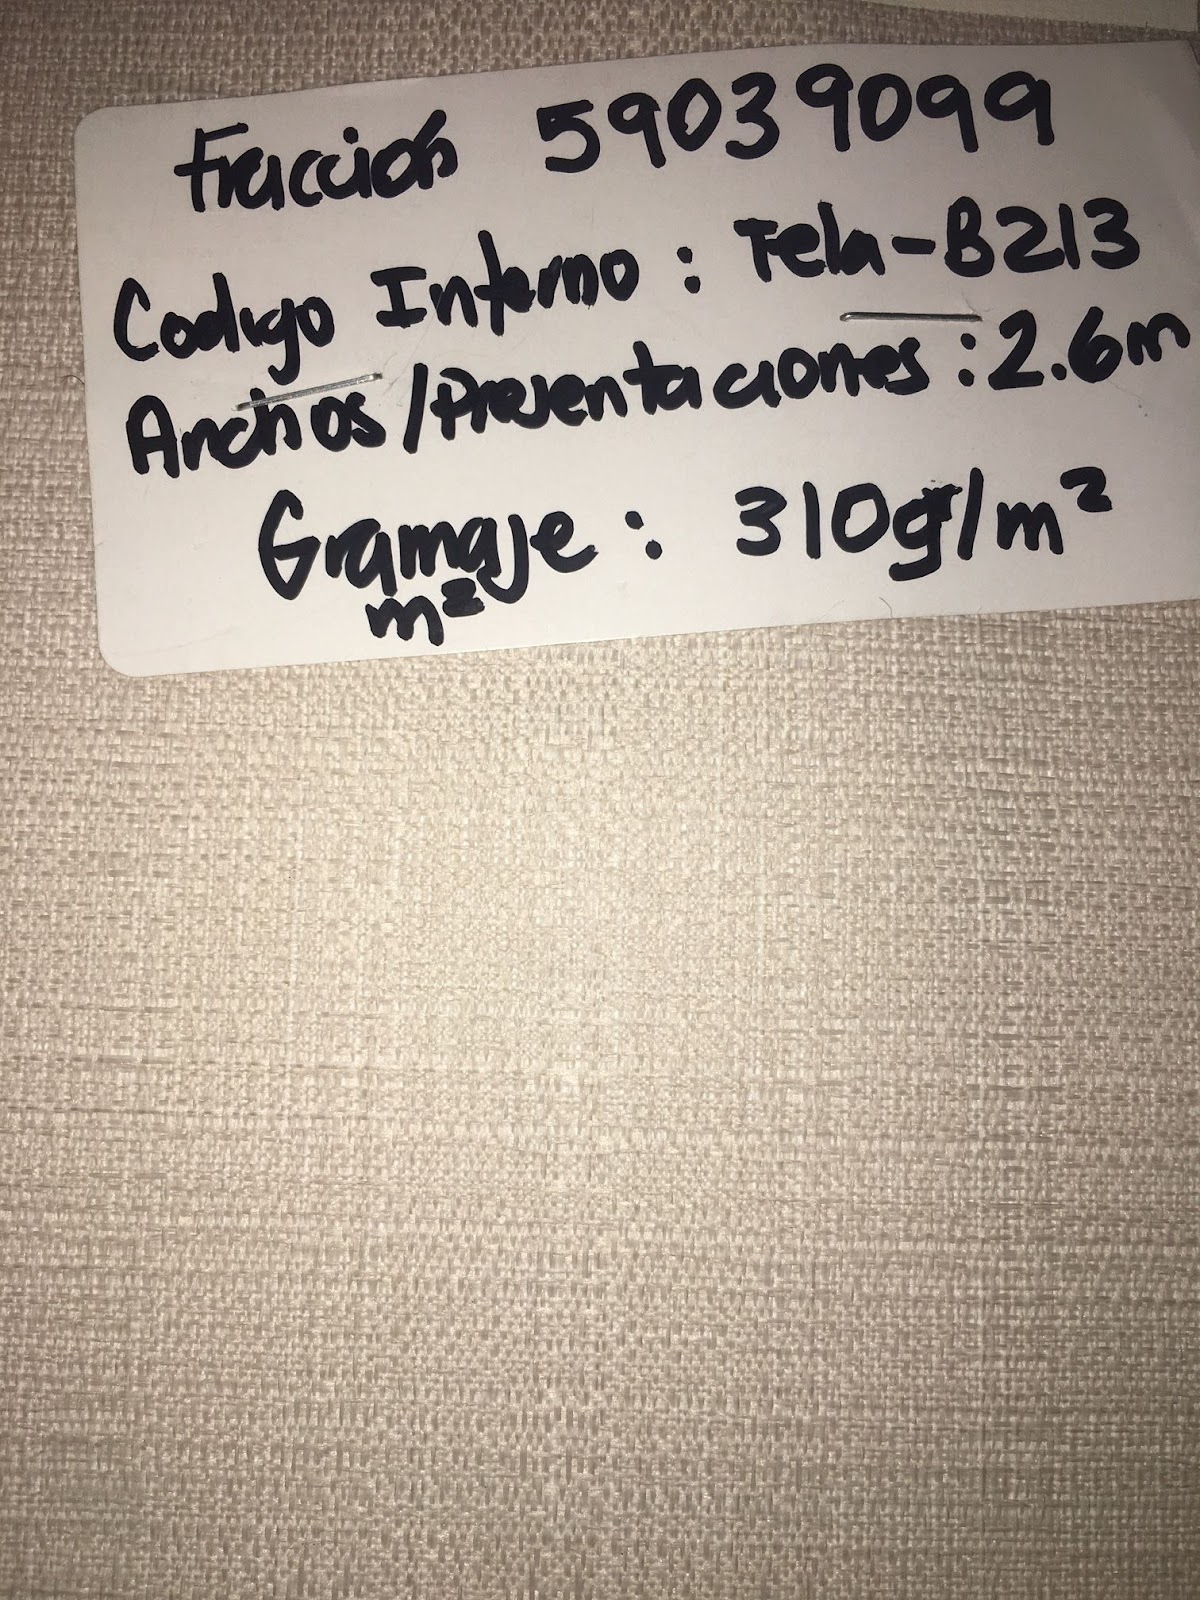 Fracción 59039099
Codigo Interno : Tela-B213
Anchos/Presentaciones : 2.6m
Gramaje : 310gr/m²
m²